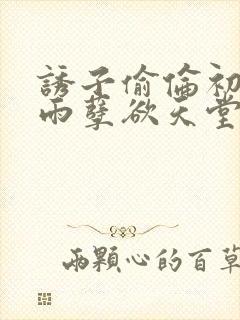 誘子偷倫初
雨孽欲天堂
兩顆心的百草